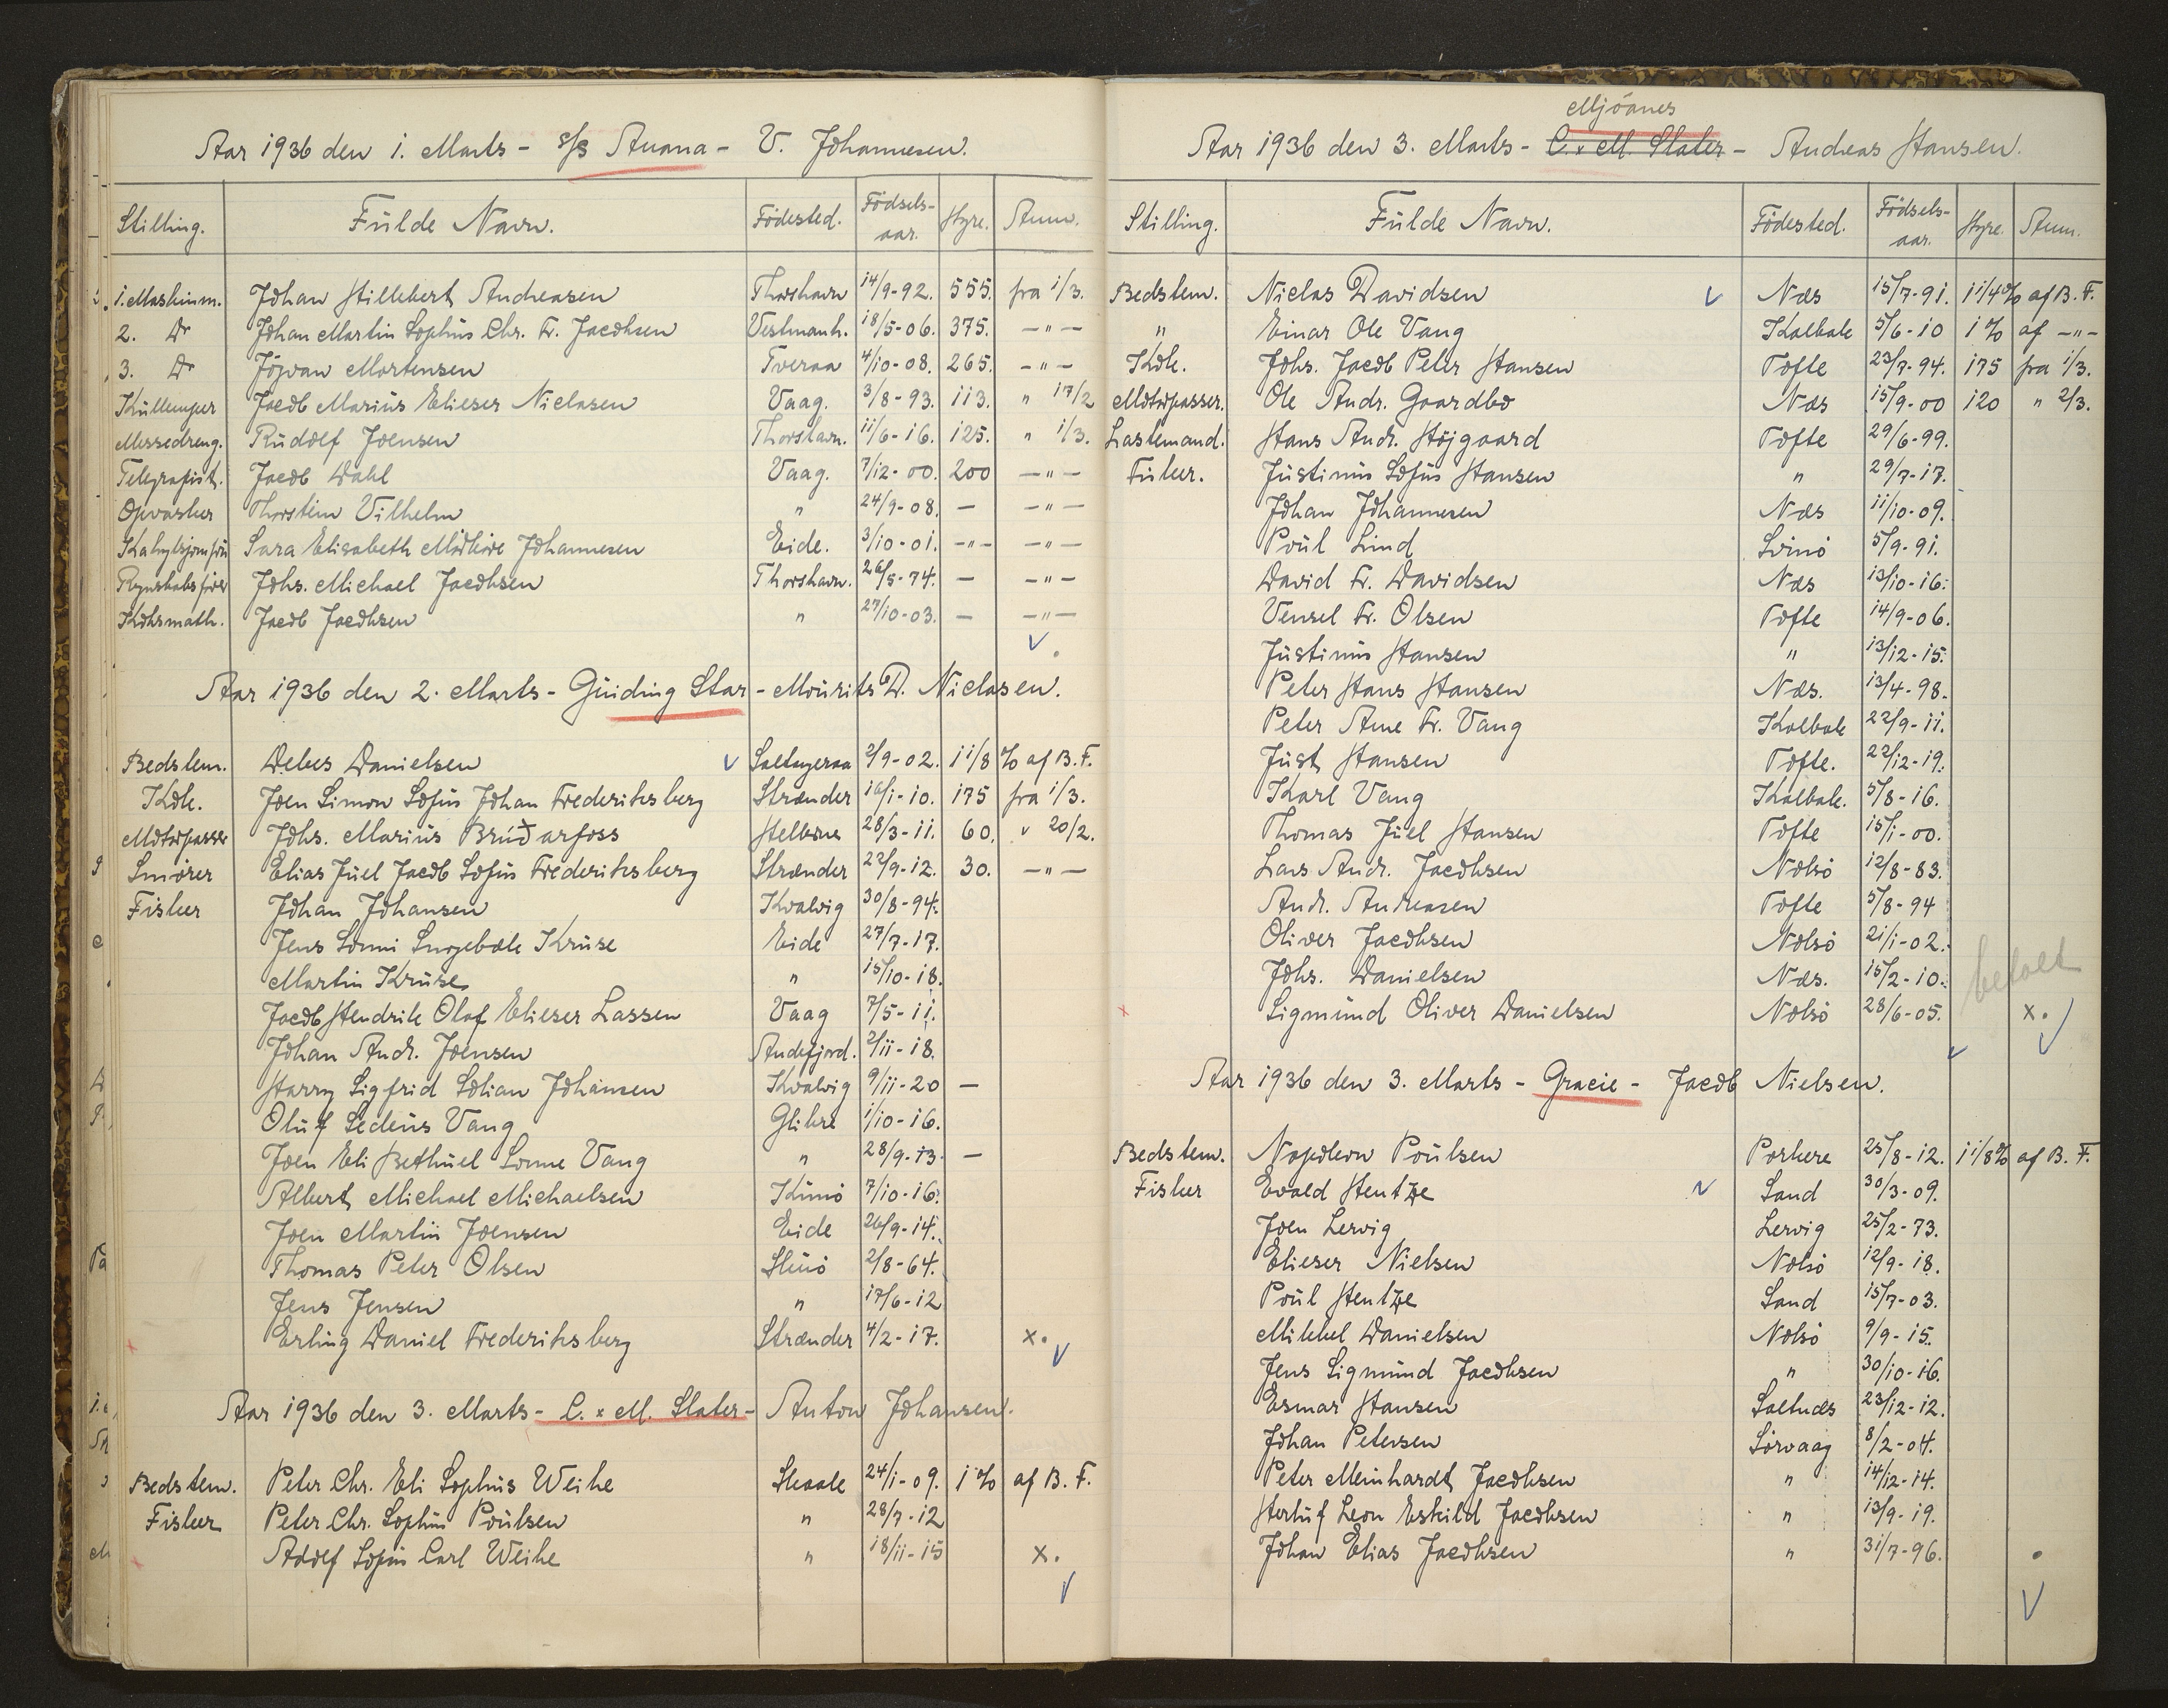 Aar 1936 den 1. Marts - s/s Anana - V. Johannesen.
Stilling. Fulde Navn. Födested. Födsels-aar. Hyre. Anm.
1. Maskinm. Johan Hillebert Andreasen Thorshavn 14/9-92. 555. fra 1/3.
2. Do Johan Martin Sophus Chr. Fr. Jacobsen Vestmanh. 18/5-06. 375. -"-
3. Do Jögvan Mortensen Tveraa 4/10-08. 265. -"-
Kullemper Jacob Marius Elieser Niclasen Vaag. 3/8-93. 113. " 17/2
Messedreng. Rudolf Joensen Thorshavn. 11/6-16. 125. " 1/3.
Telegrafist. Jacob Dahl Vaag. 7/12-00. 200 -"-
Opvasker Thorstein Vilhelm " 24/9-08. - -"-
Kahytsjomfru Sara Elisabeth Johannesen Eide. 3/10-01. -"- -"-
Regnskabsfører Johs. Michael Jacobsen Thorshavn. 26/5-74. - -"-
Koksmath. Jacob Jacobsen " 27/10-03. - -"-
Aar 1936 den 2. Marts - Guiding Star - Mourits D. Niclasen.
Bedstem. Debes Danielsen Saltngeraa 2/9-02. 1 1/8 % af B. F.
Kok. Joen Simon Sofus Johan Frederiksberg Strænder 16/1-10. 175 fra 1/3.
Motorpasser Johs. Marius Brúðarfoss Hellerne 28/3-11. 60. " 20/2.
Smörer Elias Juel Jacob Sofus Frederiksberg Strænder 22/9-12. 30. -"-
Fisker Johan Johansen Kvalvig 30/8-94.
Jens Sonni Kruse Eide 27/7-17.
Martin Kruse " 15/10-18.
Jacob Hendrik Olaf Elieser Lassen Vaag 7/5-11.
Johan Andr. Joensen Andefjord. 2/11-18.
Harry Sigfrid Solian Johansen Kvalvig 9/11-20 -
Oluf Sedeus Vang Glibre 1/10-16.
Joen Eli Bethuel Sonne Vang " 28/9-13. -
Albert Michael Michaelsen Kunö 7/10-16.
Joen Martin Joensen Eide 26/9-14.
Thomas Peter Olsen Skuö 2/8-64.
Jens Jensen " 17/6-12
x Erling Daniel Frederiksberg Strænder 4/2-17. x.
Aar 1936 den 3. Marts - C. x M. Slater - Anton Johansen.
Bedstem. Peter Chr. Eli Sophus Weihe Skaale 24/1-09. 1 % af B. F.
Fisker Peter Chr. Sophus Poulsen " 28/7-12
x Adolf Sofus Carl Weihe " 18/11-15 x.
Mjóanes
Aar 1936 den 3. Marts - C. x M. Slater - Andreas Hansen.
Stilling. Fulde Navn. Födested. Födsels-aar. Hyre. Anm.
Bedstem. Niclas Davidsen Næs 15/7-91. 1 1/4 % af B. F.
" Einar Ole Vang Kalbak 5/6-10 1 % af -"-
Kok. Johs. Jacob Peter Hansen Tofte 23/7-94. 175 fra 1/3.
Motorpasser. Ole Andr. Gaardbo Næs 15/9-00 120 " 2/3.
Lastemand. Hans Andr. Höjgaard Tofte 29/6-99.
Fisker. Justinus Sofus Hansen " 29/7-17.
Johan Johannesen Næs 11/10-09.
Poul Lind Svinö 5/9-91.
David Fr. Davidsen Næs 13/10-16.
Vensel Fr. Olsen Tofte 14/9-06.
Justinus Hansen " 13/12-15.
Peter Hans Hansen Næs. 13/4-98.
Peter Arne Fr. Vang Kalbak 22/9-11.
Just Hansen Tofte. 22/12-19.
Karl Vang Kalbak. 5/8-16.
Thomas Juel Hansen Tofte 15/1-00.
Lars Andr. Jacobsen Nolsö 12/8-83.
Andr. Andreasen Tofte 5/8-94
Oliver Jacobsen Nolsö 21/1-02.
Johs. Danielsen Næs. 15/2-10. betalt
x Sigmund Oliver Danielsen Nolsö 28/6-05. x.
Aar 1936 den 3. Marts - Gracie - Jacob Nielsen.
Bedstem. Napoleon Poulsen Porkere 25/8-12. 1 1/8 % af B. F.
Fisker Evald Hentze Sand 30/3-09.
Joen Lervig Lervig 25/2-73.
Elieser Nielsen Nolsö 12/9-18.
Poul Hentze Sand 15/7-03.
Mikkel Danielsen Nolsö 9/9-15.
Jens Sigmund Jacobsen " 30/10-16.
Esmar Hansen Saltnæs 23/12-12.
Johan Petersen Sörvaag 8/2-04.
Peter Meinhardt Jacobsen " 14/12-14.
Herluf Leon Eskild Jacobsen " 13/9-19.
Johan Elias Jacobsen " 31/7-96.